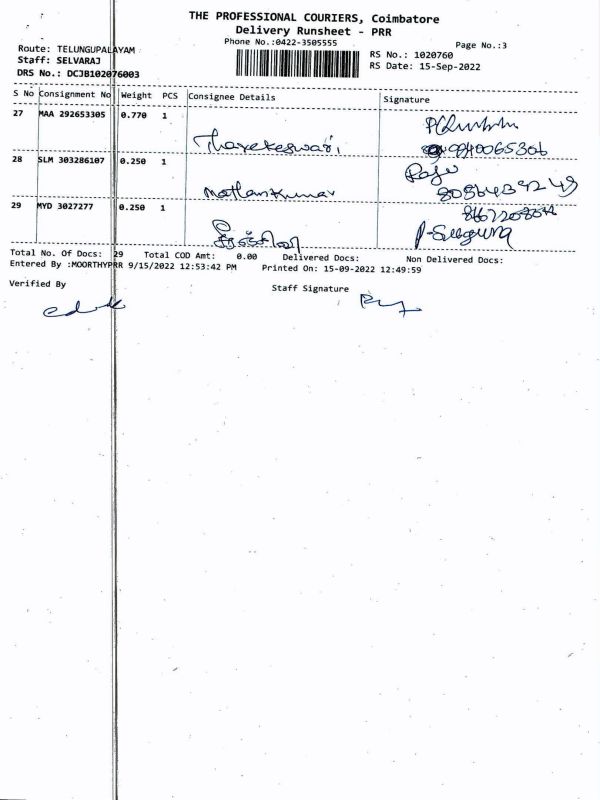 THE PROFESSIONAL COURIERS, Coimbatore
Delivery Runsheet - PRR
Phone No.:0422-3505555
Page No.:3
Route: TELUNGUPALAYAM
Staff: SELVARAJ
DRS No.: DCJB102076003
RS No.: 1020760
RS Date: 15-Sep-2022
S No Consignment No Weight PCS Consignee Details Signature
27 MAA 292653305 0.770 1
Tharekeswari,
9840065306
28 SLM 303286107 0.250 1
Raju
29 MYD 3027277 0.250 1
Total No. Of Docs: 29 Total COD Amt: 0.00 Delivered Docs: Non Delivered Docs:
Entered By :MOORTHYPRR 9/15/2022 12:53:42 PM Printed On: 15-09-2022 12:49:59
Verified By
Staff Signature